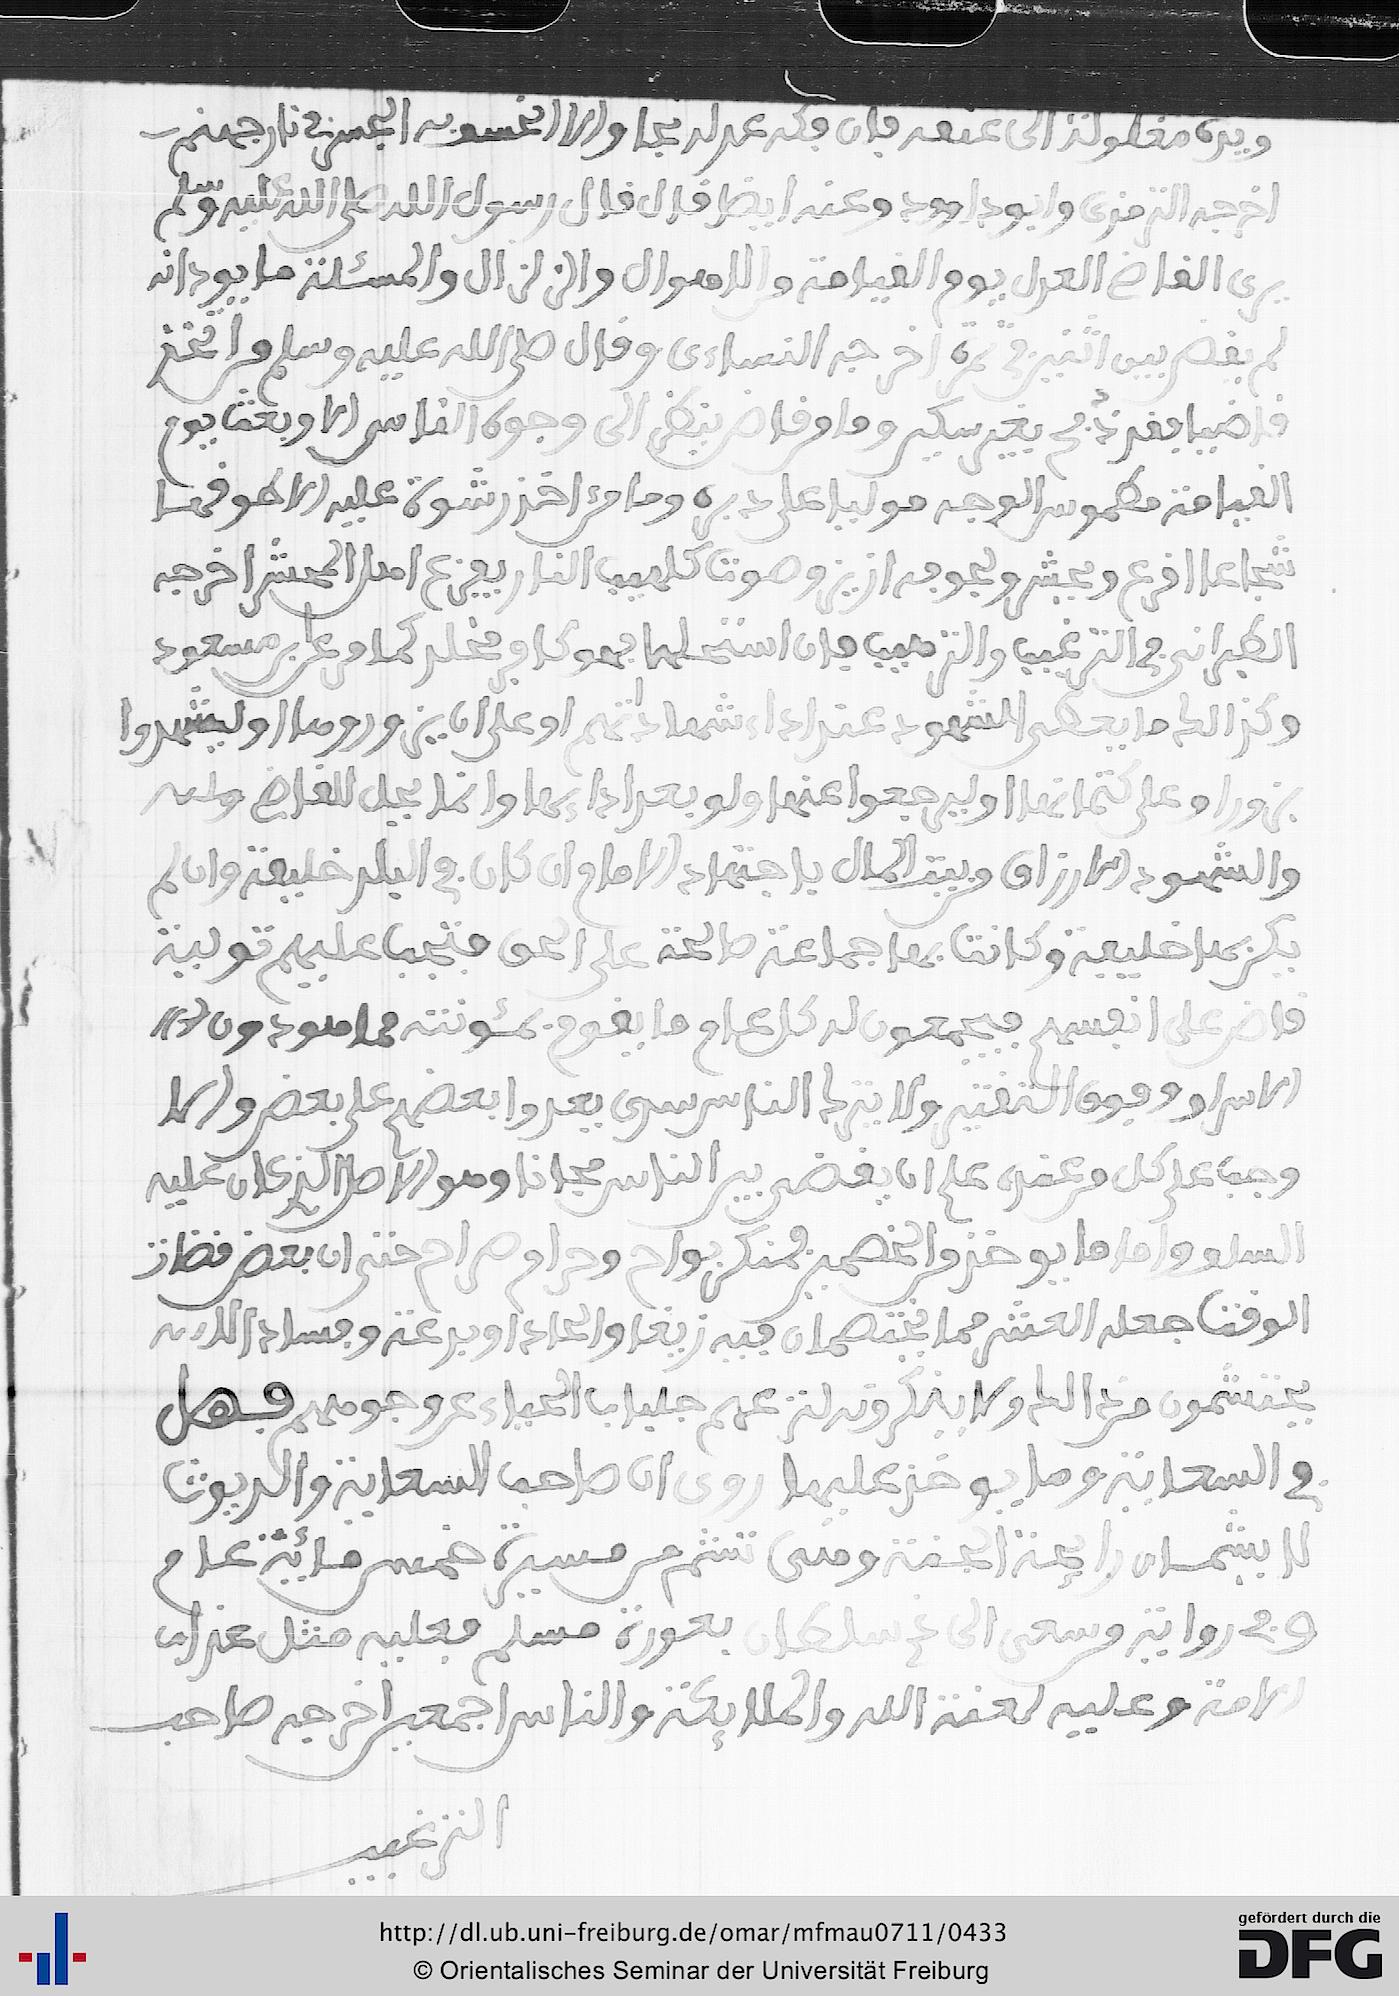 ويده مغلولة الى عنقه فان فكه عدله نجا والا انخسف به الجسر في نار جهنم
اخرجه الترمذي وابو داوود وعنه ايضا قال قال رسول الله صلى الله عليه وسلم
يرى القاضي العدل يوم القيامة والاهوال والزلزال والمسئلة ما يود انه
لم يقض بين اثنين في تمرة اخرجه النساءي وقال صلى الله عليه وسلم من اتخذ
قاضيا فقد ذبح بغير سكين وما من قاض ينظر الى وجوه الناس الا وبعث يوم
القيامة مطموس الوجه موليا على دبره وما من اخذ رشوة عليه الا طوقها
شجاعا اقرع وبحش ولجوفه ازيز وصوت كلهيب النار يفزع اهل المحشر اخرجه
الطبراني في الترغيب والترهيب فان استحلها فهو كافر مخلد كما مر عن ابن مسعود
وكذالك ما يعطى الشهود عند اداء شهادتهم او على ان يزوروها او ليشهدوا
بزور او على كتمانها او ليرجعوا عنها ولو بعد اداءها وانما يحل للقاضي
والشهود الارزاق من بيت المال باجتهاد الامام ان كان في البلد خليفة وان لم
يكن بها خليفة وكانت بها جماعة صالحة على الحق فتجب عليهم تولية
قاض على انفسهم فيجمعون له كل عام ما يقوم بمئونته مما هو دون
الاسراف وفوق التقتير ولا يترك الناس سدى يعدوا بعضهم على بعض والا
وجب على كل من عنده علم ان يقضي بين الناس مجانا وهو الاصل الذي كان عليه
السلف واما ما يوخذ من الخصمين فمنكر بواح وحرام صراح حتى ان بعض قضاة
الوقت جعله العشر مما يختصمان فيه زيغا والحادا وبدعة وفسادا
يحتشمون من ذالك ولا ينكرونه لنزعهم جلباب الحياء عن وجوههم فصل
في السعاية وما يوخذ عليها روي ان صاحب السعاية والديوث
لا يشمان رايحة الجنة وهي تشم من مسيرة خمس مائة عام
وفي رواية من سعى الى ذي سلطان بعورة مسلم فعليه مثل عذاب
الامة وعليه لعنة الله والملايكة والناس اجمعين اخرجه صاحب
الترغيب
http://dl.ub.uni-freiburg.de/omar/mfmau0711/0433
© Orientalisches Seminar der Universität Freiburg
gefördert durch die
DFG